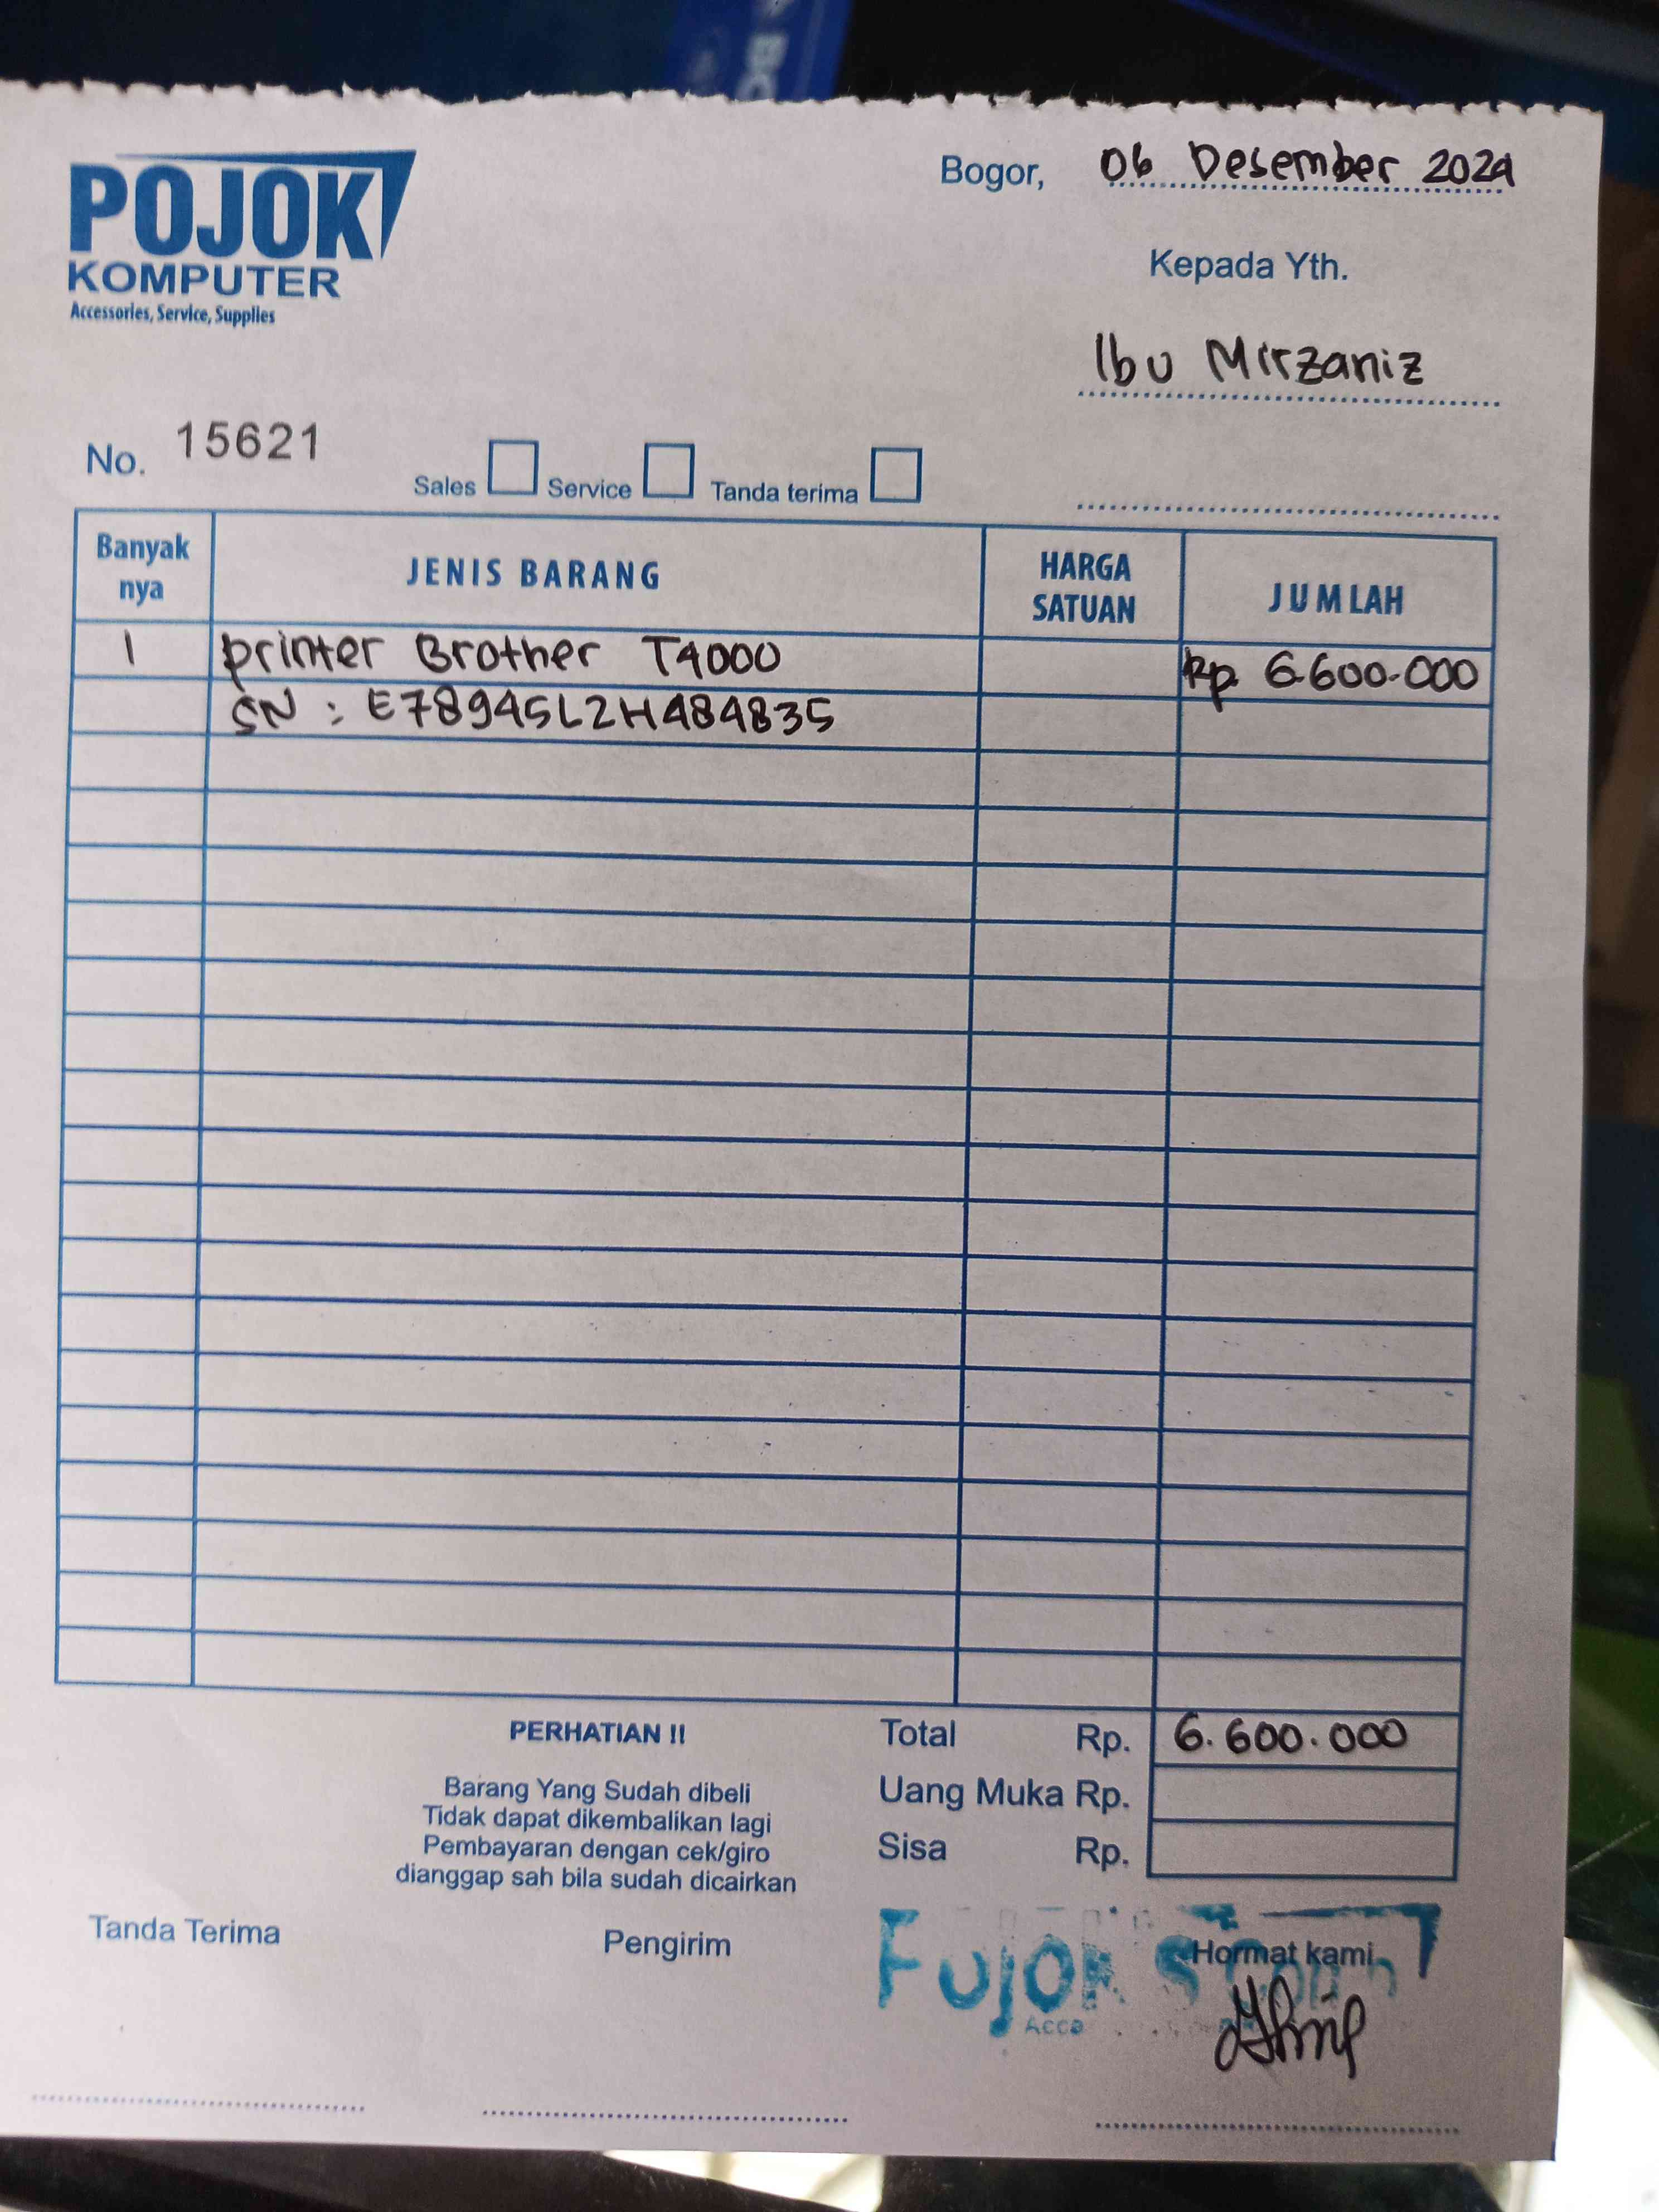 POJOK
KOMPUTER
Accessories, Service, Supplies
Bogor, 06 Desember 2024
Kepada Yth.
Ibu Mirzaniz
No. 15621
Sales Service Tanda terima
Banyak nya JENIS BARANG HARGA SATUAN JUMLAH
1 printer Brother T4000 Rp. 6.600.000
SN : E78945L2H484835
PERHATIAN !!
Barang Yang Sudah dibeli
Tidak dapat dikembalikan lagi
Pembayaran dengan cek/giro
dianggap sah bila sudah dicairkan
Total Rp. 6.600.000
Uang Muka Rp.
Sisa Rp.
Tanda Terima Pengirim Hormat kami